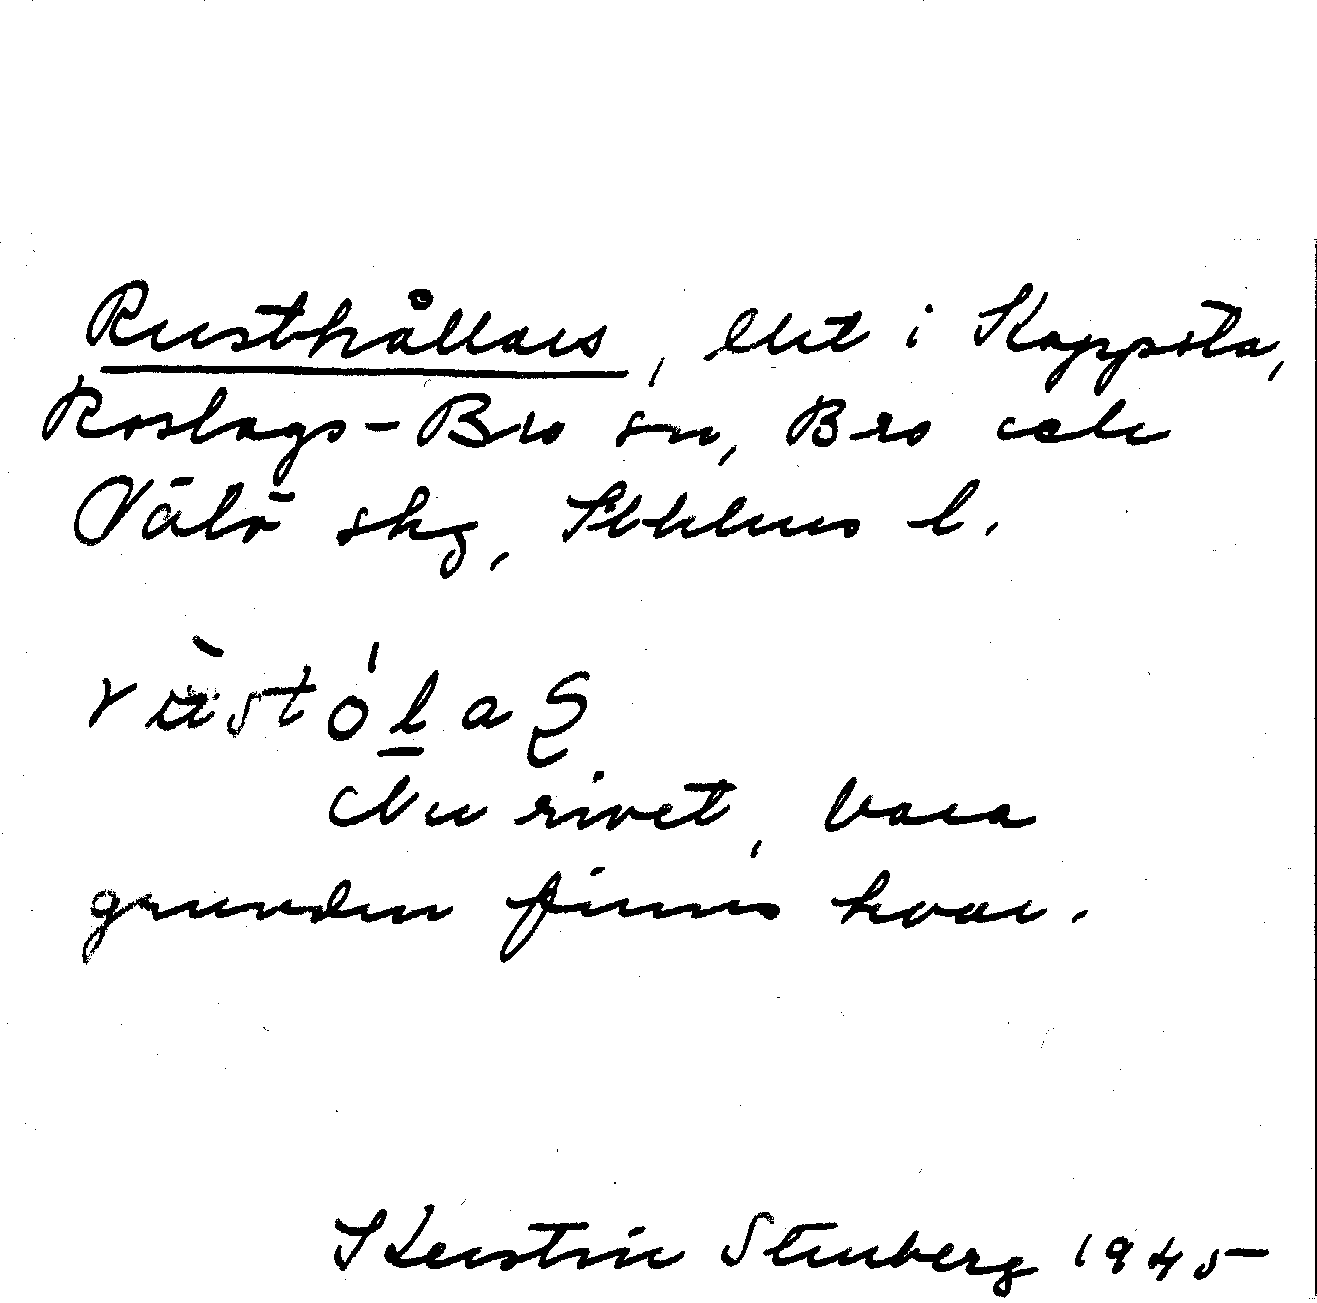 Rusthållars, lht i Kappsta,
Roslags-Bro sn, Bro och
Välö skg, Sthlms l.
Nu rivet, bara
grunden finns kvar.
Kerstin Stenberg 1945